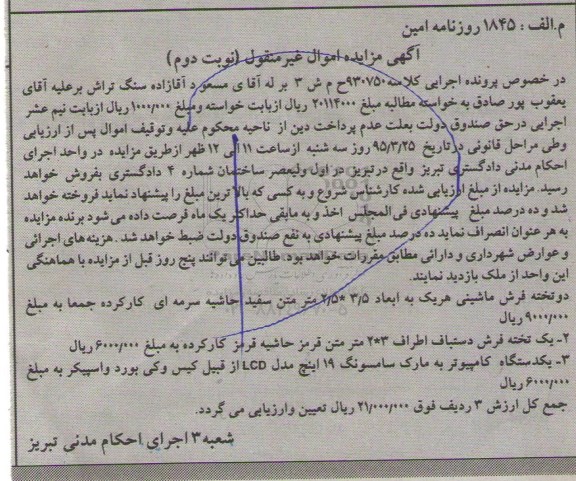 م.الف : ۱۸۴۵ روزنامه امین
آگهی مزایده اموال غیرمنقول (نوبت دوم)
در خصوص پرونده اجرایی کلاسه ۹۳۰۷۵۰ح م ش ۳ بر له آقا ی مسعو د آقازاده سنگ تراش برعلیه آقای
یعقوب پور صادق به خواسته مطالبه مبلغ ۲۰۱۱۴۰۰۰ ریال ازبابت خواسته ومبلغ ۱۰۰۰/۰۰۰ ریال ازبابت نیم عشر
اجرایی درحق صندوق دولت بعلت عدم پرداخت دین از ناحیه محکوم علیه وتوقیف اموال پس از ارزیابی
وطی مراحل قانونی درتاریخ ۹۵/۳/۲۵ روز سه شنبه ازساعت ۱۱ الی ۱۲ ظهر ازطریق مزایده در واحد اجرای
احکام مدنی دادگستری تبریز واقع درتبریز در اول ولیعصر ساختمان شماره ۴ دادگستری بفروش خواهد
رسید. مزایده از مبلغ ارزیابی شده کارشناس شروع و به کسی که بالاترین مبلغ را پیشنهاد نماید فروخته خواهد
شد و ده درصد مبلغ پیشنهادی فی المجلس اخذ و به مابقی حداکثر یک ماه فرصت داده می شود برنده مزایده
به هر عنوان انصراف نماید ده درصد مبلغ پیشنهادی به نفع صندوق دولت ضبط خواهد شد .هزینه‌های اجرائی
و عوارض شهرداری و دارائی مطابق مقررات خواهد بود .طالبین می توانند پنج روز قبل از مزایده با هماهنگی
این واحد از ملک بازدید نمایند.
دوتخته فرش ماشینی هریک به ابعاد ۳/۵ *۲/۵ متر متن سفید حاشیه سرمه ای کارکرده جمعا به مبلغ
۹۰۰۰/۰۰۰ ریال
۲- یک تخته فرش دستباف اطراف ۳*۲ متر متن قرمز حاشیه قرمز کارکرده به مبلغ ۶۰۰۰/۰۰۰ ریال
۳- یکدستگاه کامپیوتر به مارک سامسونگ ۱۹ اینچ مدل LCD از قبیل کیس وکی بورد واسپیکر به مبلغ
۶۰۰۰/۰۰۰ ریال
جمع کل ارزش ۳ ردیف فوق ۲۱/۰۰۰/۰۰۰ ریال تعیین وارزیابی می گردد.
شعبه ۳ اجرای احکام مدنی تبریز